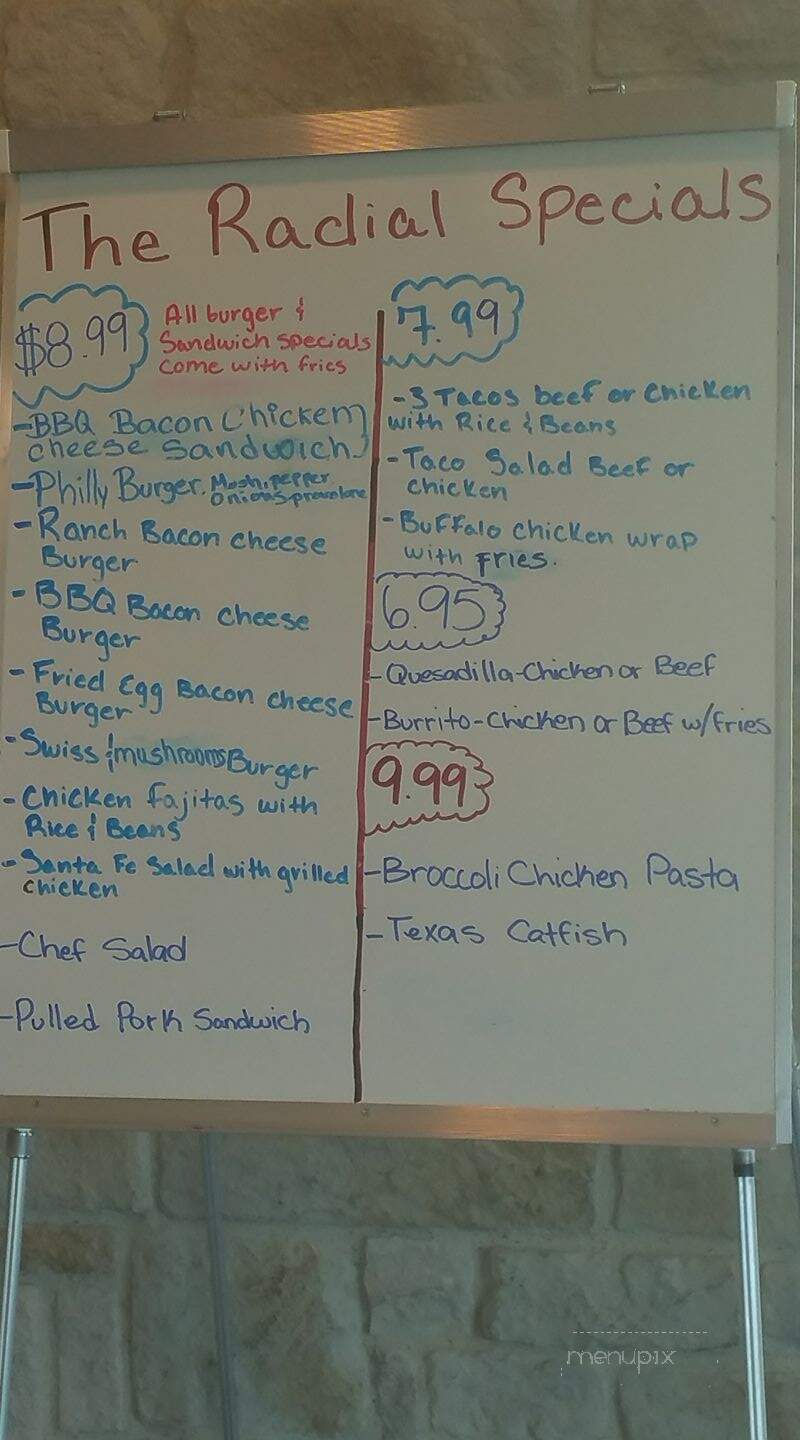 The Radial Specials
$8.99
All burger &
Sandwich specials
come with fries
-BBQ Bacon Chicken
cheese Sandwich
-Philly Burger. Mush, pepper
Onions, provolone
-Ranch Bacon cheese
Burger
-BBQ Bacon cheese
Burger
-Fried Egg Bacon cheese
Burger
-Swiss & mushrooms Burger
-Chicken fajitas with
Rice & Beans
-Santa Fe Salad with grilled
chicken
-Chef Salad
-Pulled Pork Sandwich
7.99
-3 Tacos beef or Chicken
with Rice & Beans
-Taco Salad Beef or
chicken
-Buffalo chicken wrap
with fries.
6.95
-Quesadilla-Chicken or Beef
-Burrito-Chicken or Beef w/fries
9.99
-Broccoli Chicken Pasta
-Texas Catfish
menupix